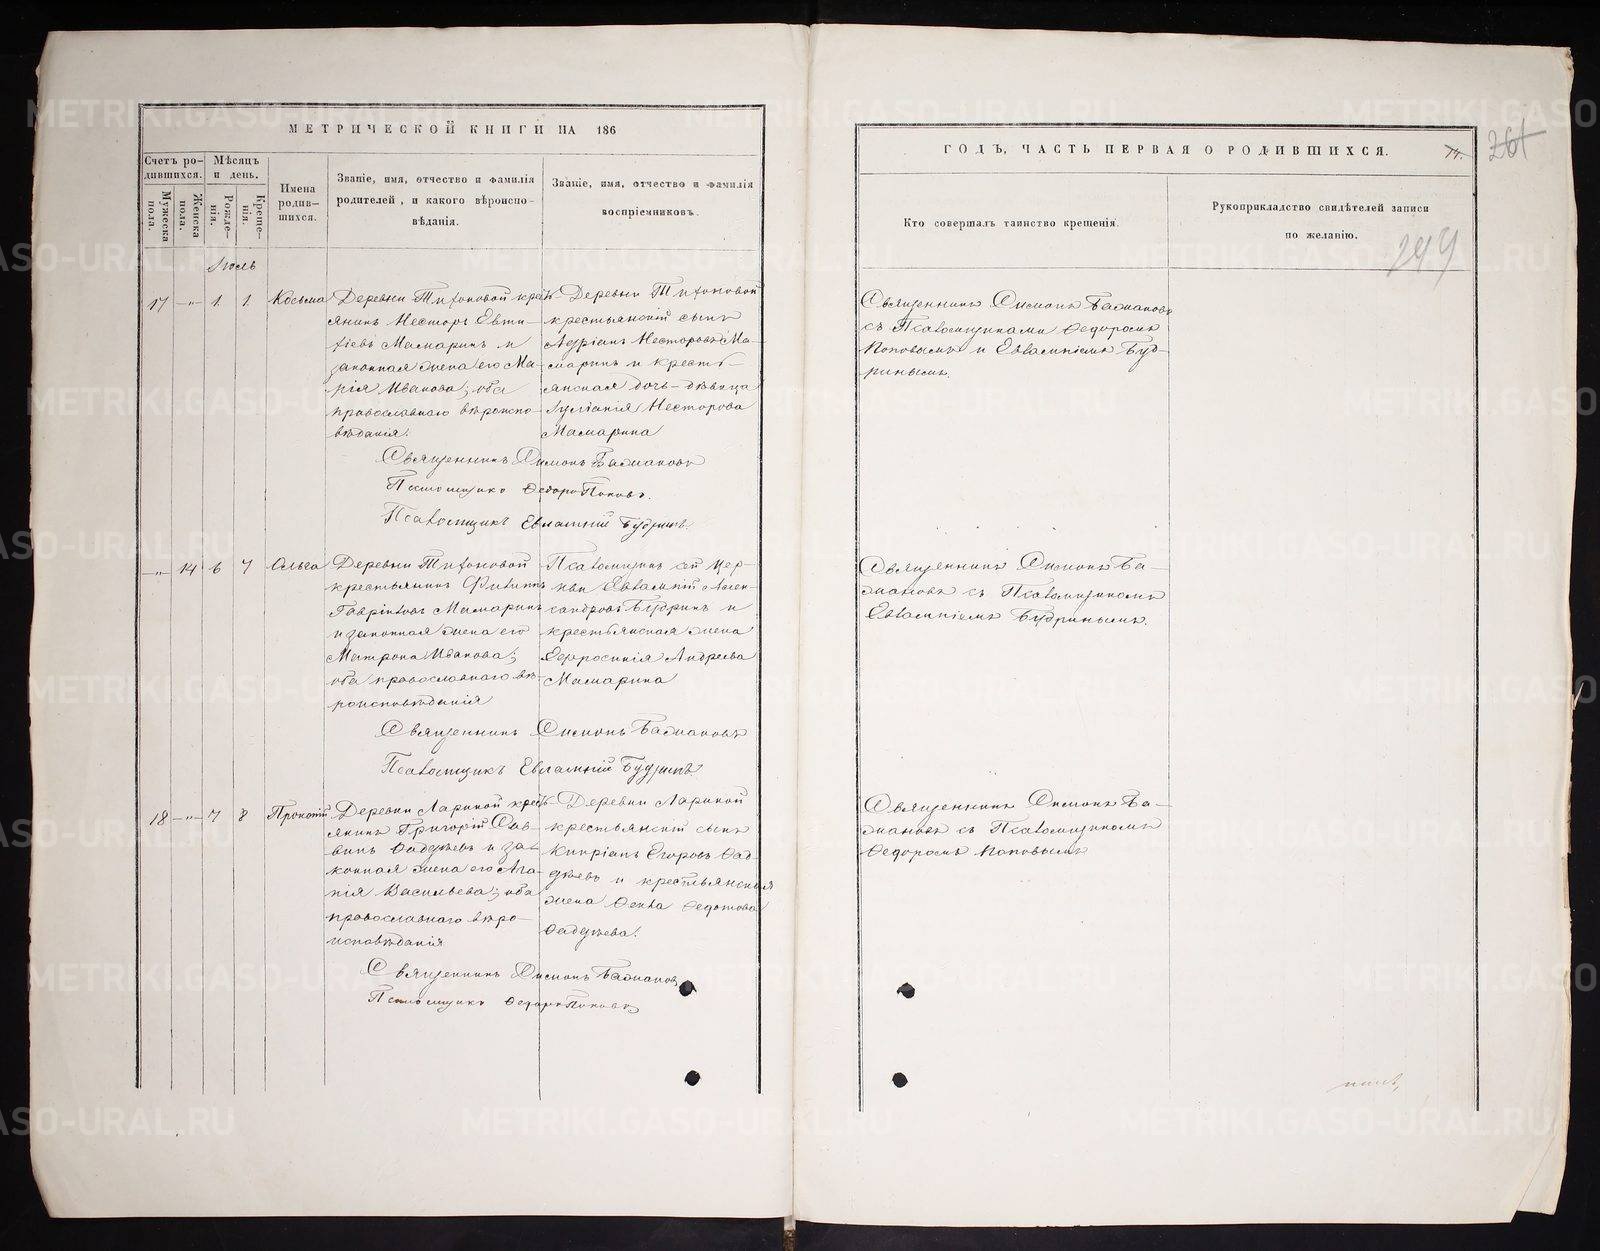 МЕТРИЧЕСКОЙ КНИГИ НА 186
Счетъ ро-
дившихся.
Мѣсяцъ
и день.
Мужеска
пола.
Женска
пола.
Рожде-
нія.
Креще-
нія.
Имена
родив-
шихся.
Званіе, имя, отчество и фамилія
родителей, и какого вѣроиспо-
вѣданія.
Званіе, имя, отчество и фамилія
воспріемниковъ.
Іюль
17 —„— 1. 1. Косьма
Деревни Тихоновой крестъ-
янинъ Несторъ Евти-
хіевъ Мамаринъ и
законная жена его Ма-
рія Иванова; оба
православнаго вѣроиспо-
вѣданія.
Деревни Тихоновой
крестьянскій сынъ
Адріанъ Несторовъ Ма-
маринъ и кресть-
янская дочь-дѣвица
Іуліанія Несторова
Мамарина
Священникъ Симонъ Бажановъ
Псаломщикъ Ѳедоръ Поповъ.
Псаломщикъ Евлампій Будринъ.
—„— 14 6 7 Ольга
Деревни Тихоновой
крестьянинъ Филиппъ
Гавріиловъ Мамаринъ
и законная жена его
Матрона Иванова;
оба православнаго вѣ-
роисповѣданія
Псаломщикъ сей цер-
кви Евлампій Алек-
сандровъ Будринъ и
крестьянская жена
Евфросинія Андреева
Мамарина
Священникъ Симонъ Бажановъ
Псаломщикъ Евлампій Будринъ
18 —„— 7 8 Прокопій
Деревни Лариной крестъ-
янинъ Григорій Сав-
винъ Ѳаддѣевъ и за-
конная жена его Ага-
пія Васильева; оба
православнаго вѣро-
исповѣданія
Деревни Лариной
крестьянскій сынъ
Кипріанъ Егоровъ Ѳад-
дѣевъ и крестьянская
жена Ѳекла Ѳедотова
Ѳаддѣева.
Священникъ Симонъ Бажановъ
Псаломщикъ Ѳедоръ Поповъ
ГОДЪ, ЧАСТЬ ПЕРВАЯ О РОДИВШИХСЯ.
261
Кто совершалъ таинство крещенія.
Рукоприкладство свидѣтелей записи
по желанію.
249
Священникъ Симонъ Бажановъ
съ Псаломщиками Ѳедоромъ
Поповымъ и Евлампіемъ Буд-
ринымъ.
Священникъ Симонъ Ба-
жановъ съ Псаломщикомъ
Евлампіемъ Будринымъ.
Священникъ Симонъ Ба-
жановъ съ Псаломщикомъ
Ѳедоромъ Поповымъ
METRIKI.GASO-URAL.RU